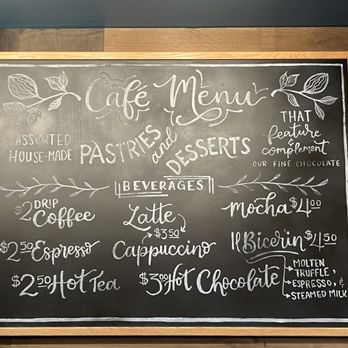 Café Menu
ASSORTED
HOUSE-MADE
PASTRIES
and
DESSERTS
THAT
feature
&
complement
OUR FINE CHOCOLATE
BEVERAGES
$2 DRIP
Coffee
Latte
$3.50
Cappuccino
Mocha $4.00
$2.50 Espresso
Il Bicerin $4.50
MOLTEN
TRUFFLE,
ESPRESSO, &
STEAMED MILK
$2.50 Hot Tea
$3.00 Hot Chocolate